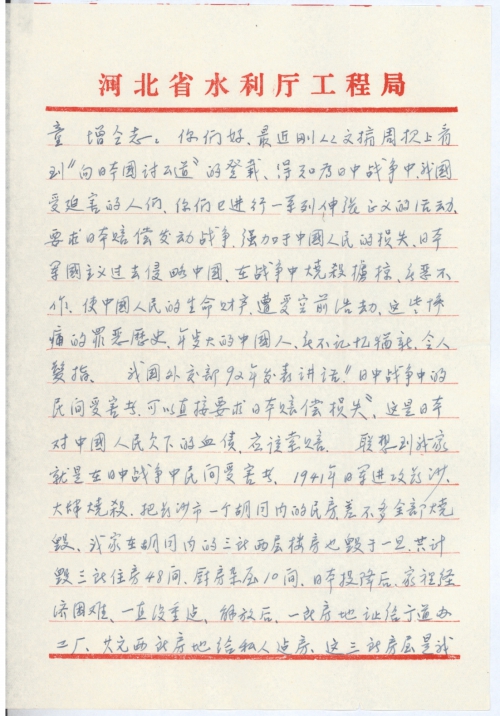 河北省水利厅工程局
童增同志：你们好、最近刚从文摘周报上看
到“向日本国讨公道”的登载、得知在日中战争中，我國
受迫害的人们、你们已进行一系列伸张正义的活动，
要求日本赔偿发动战争，强加于中國人民的损失、日本
軍國主义过去侵略中国、在战争中烧殺掳掠、无恶不
作、使中國人民的生命财产、遭受空前浩劫、这些惨
痛的罪恶歷史、年岁大的中國人、无不记忆犹新、令人
髮指、 我国外交部92年发表讲话“日中战争中的
民间受害者、可以直接要求日本赔偿损失”、这是日本
对中國人民欠下的血债、应该索赔、 联想到我家
就是在日中战争中民间受害者、1941年日军进攻长沙、
大肆烧殺、把长沙市一个胡同内的民房差不多全部烧
毁、我家在胡同内的三所两层楼房也毁于一旦、共计
毁三所住房48间、厨房杂屋10间、日本投降后、家裡经
济困难、一直没重造、解放后、一所房地让给了道办
工厂、其它两所房地给私人造房、这三所房屋是我